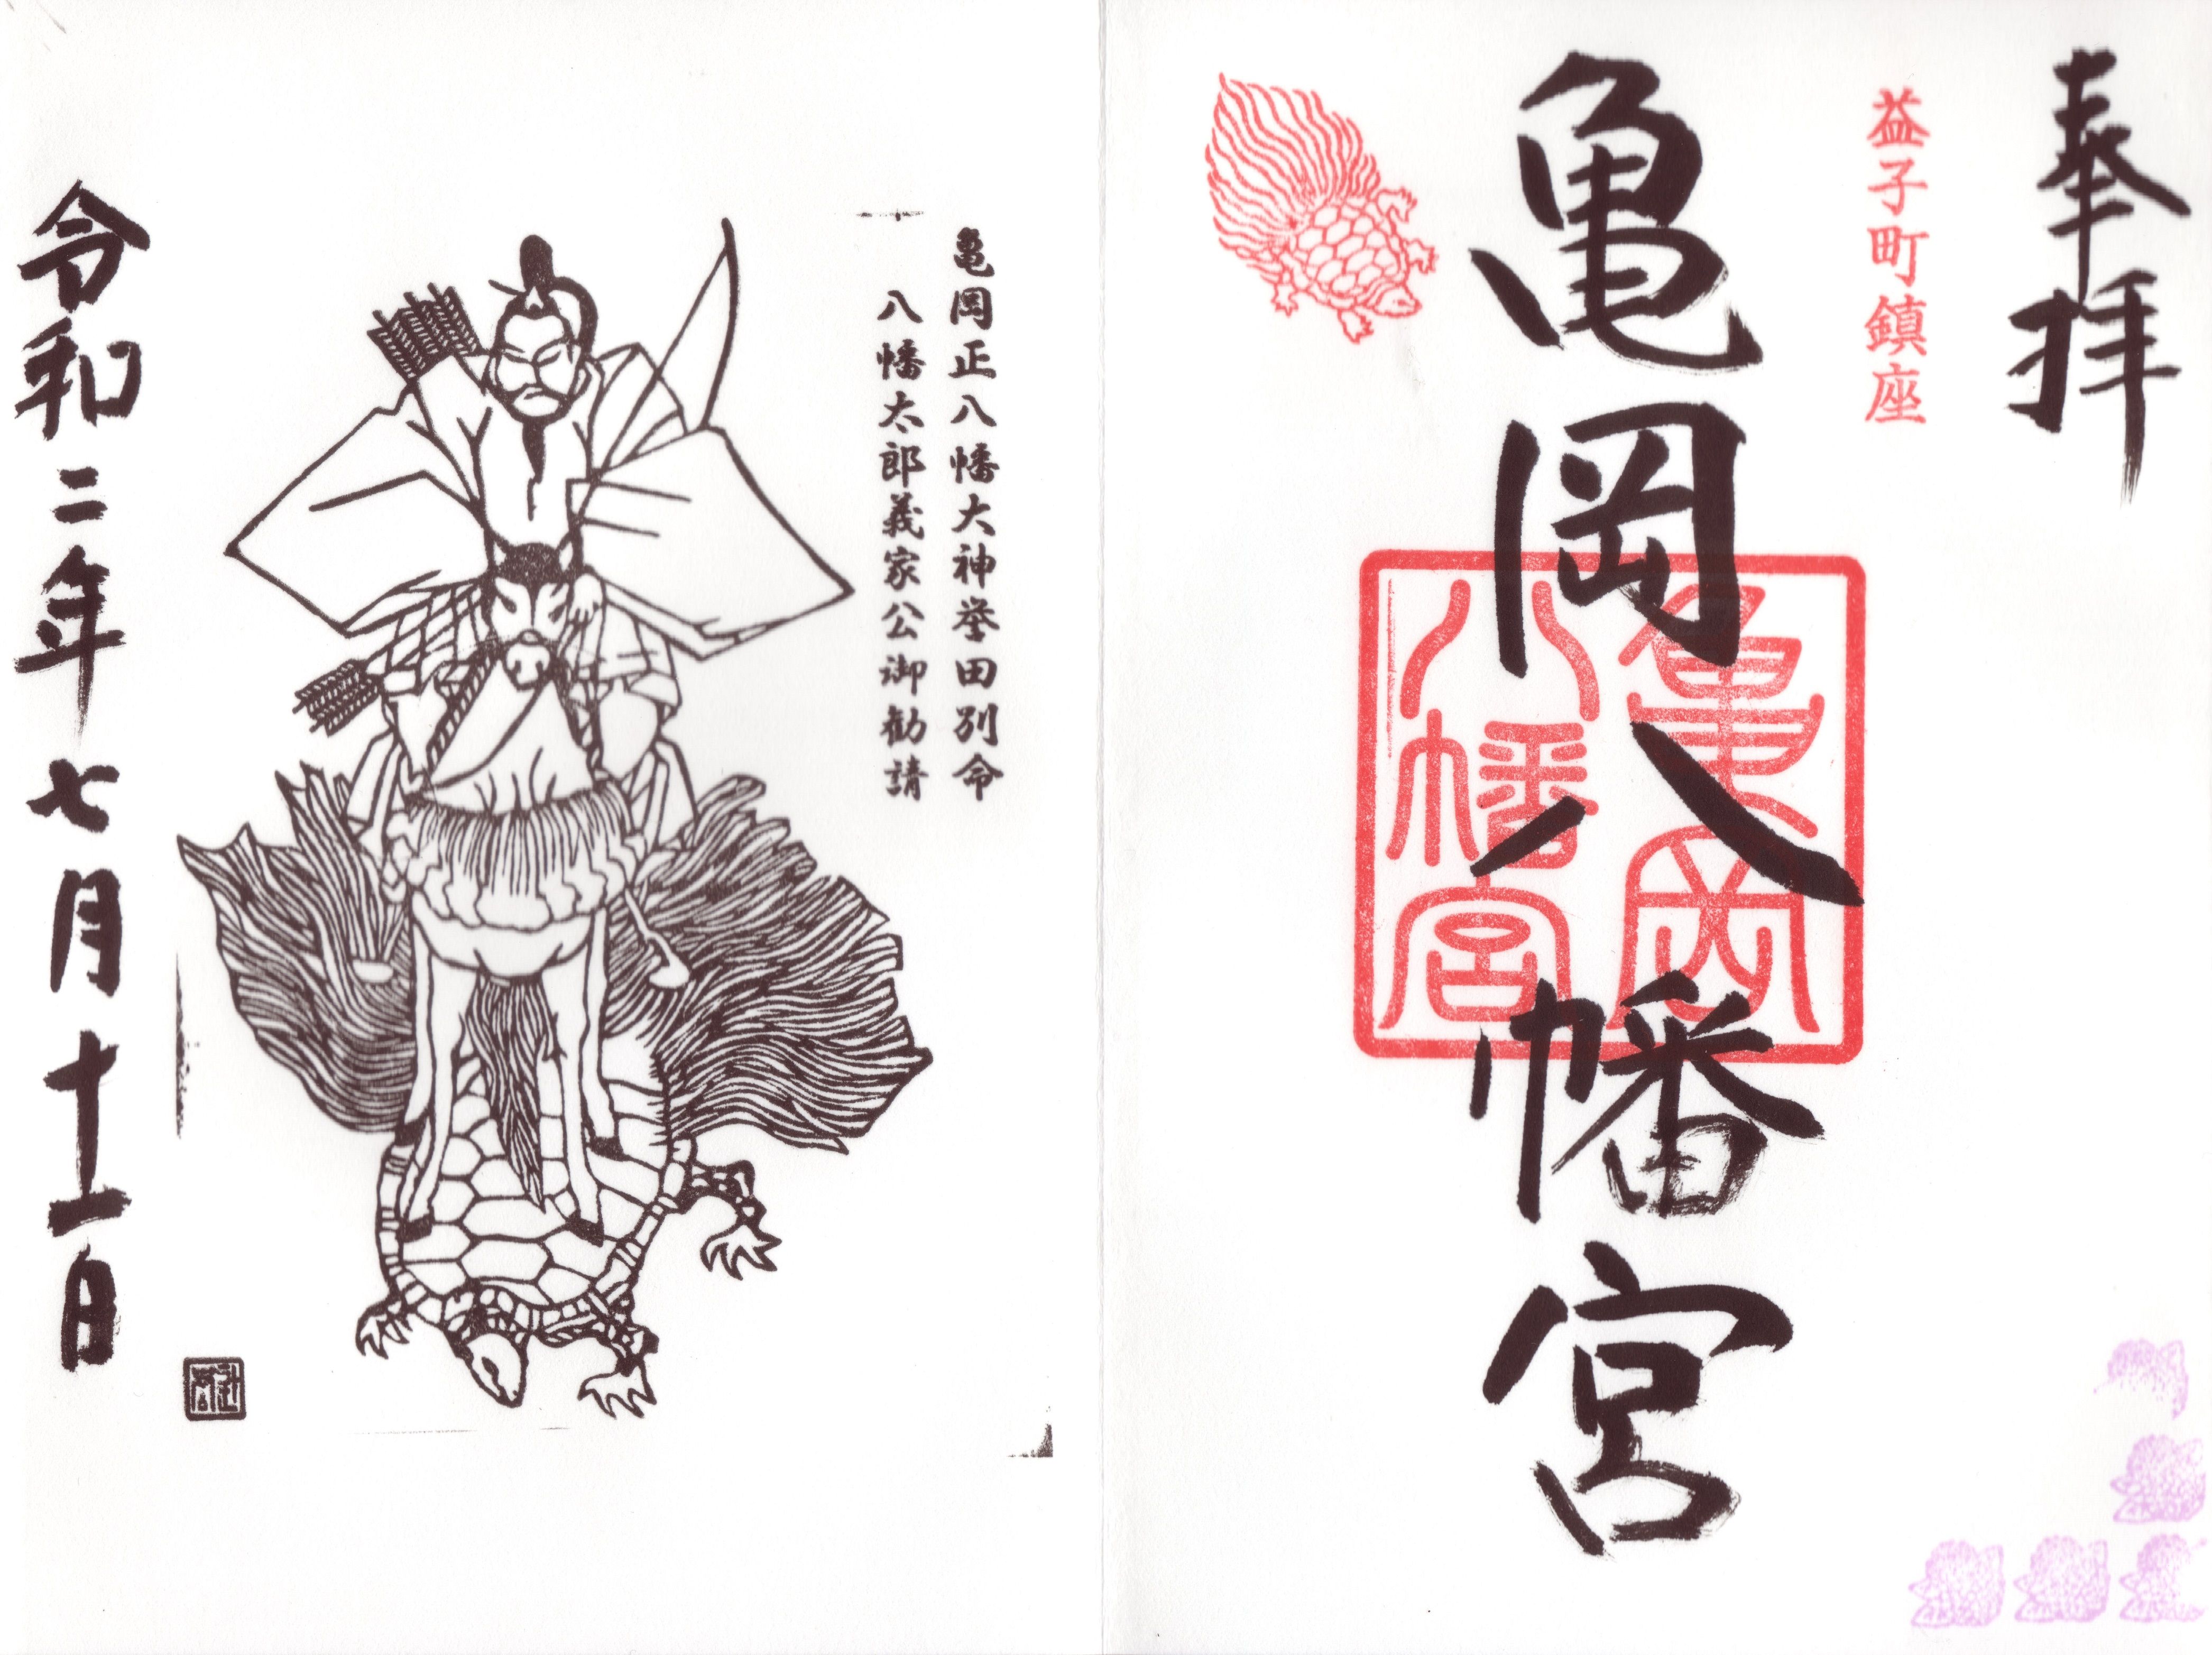 奉拝
益子町鎮座
亀岡八幡宮
亀岡
八幡宮
亀岡正八幡大神誉田別命
八幡太郎義家公御勧請
令和二年七月十一日